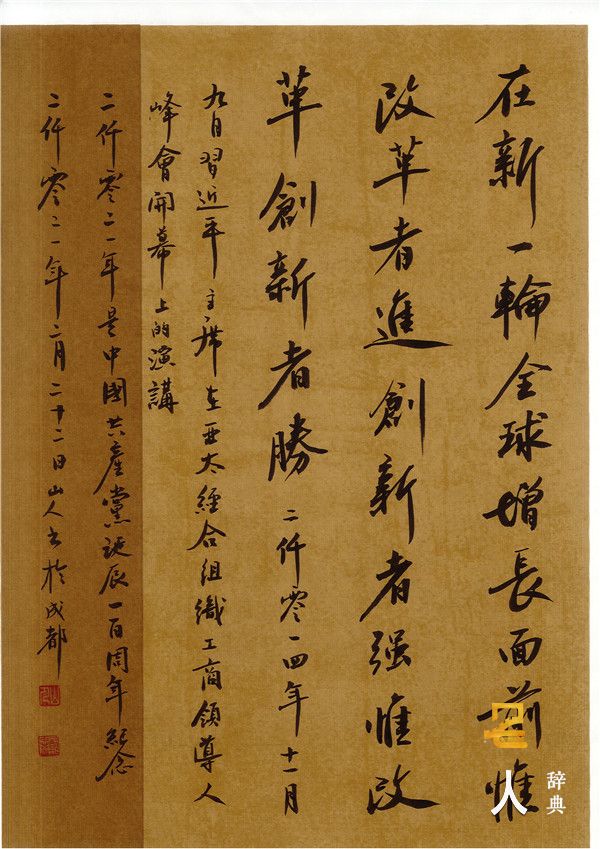 在新一輪全球增長面前惟
改革者進創新者强惟改
革創新者勝二仟零一四年十一月
九日習近平主席在亞太經合組織工商領導人
峰會開幕上的演講
二仟零二一年是中國共產黨誕辰一百周年紀念
二仟零二一年二月二十二日山人书於成都
名人
辞典